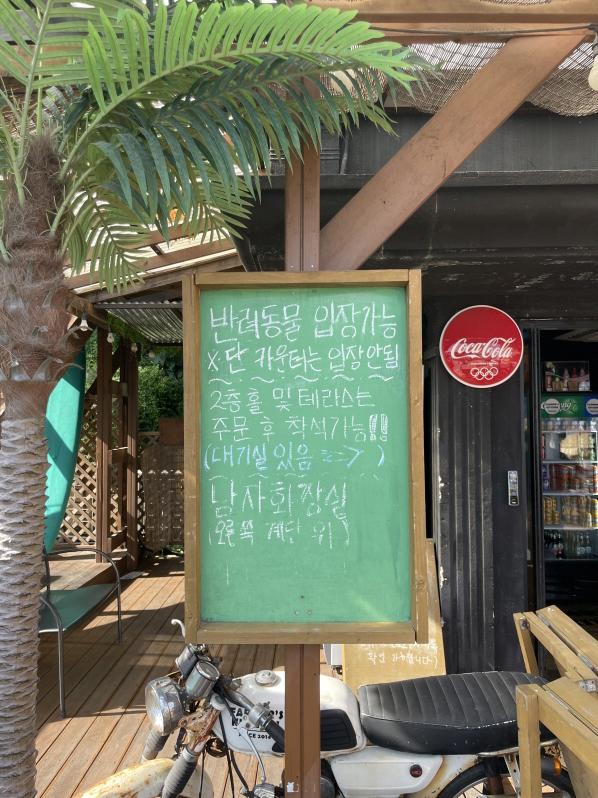 반려동물 입장가능
X 단 카운터는 입장안됨
2층홀 및 테라스는
주문 후 착석가능!!
(대기실 있음 => )
남자화장실
(왼쪽 계단 위)
Coca-Cola